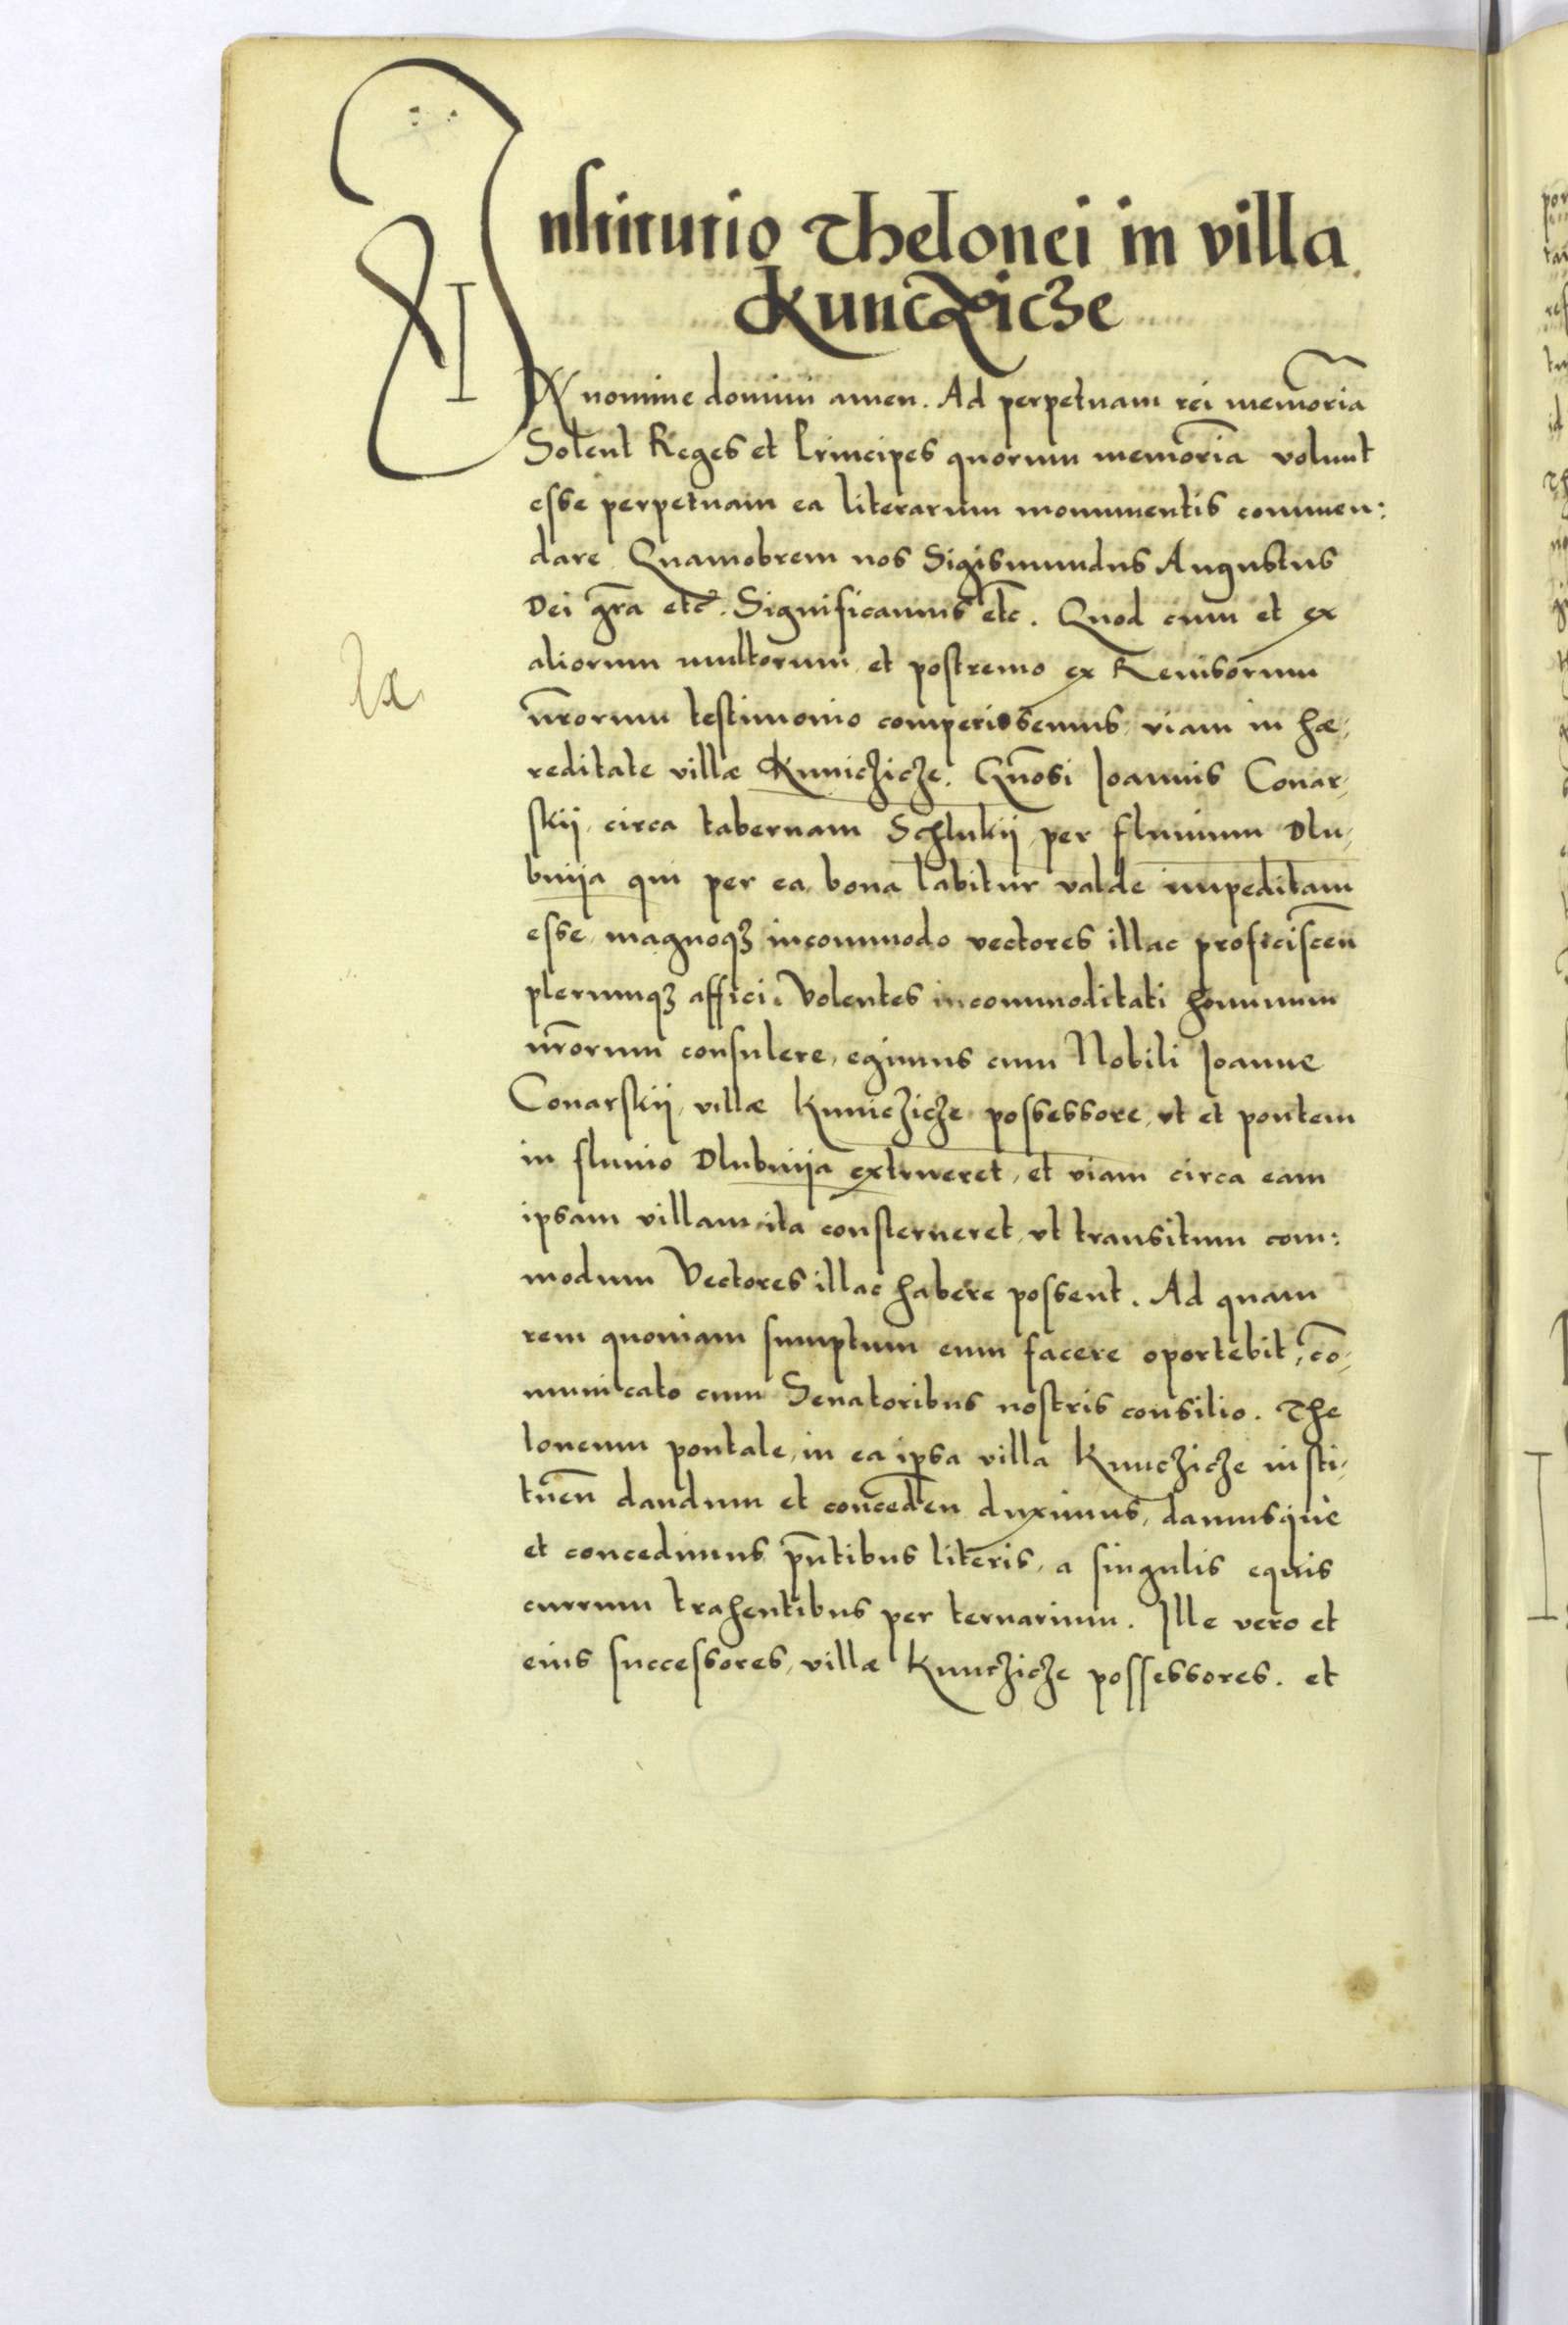 Institutio Thelonei in villa
Kunczicze
IN nomine domini amen. Ad perpetuam rei memoria
Solent Reges et Principes quorum memoria volunt
esse perpetuam ea literarum monumentis commen:
dare. Quamobrem nos Sigismundus Augustus
Dei gra etc. Significamus etc. Quod cum et ex
aliorum multorum et postremo ex Revisorum
nrorum testimonio comperissemus, viam in hæ,
reditate villæ Kuniczicze. Gnosi Joannis Conar,
skij, circa tabernam Schlukij, per fluvium Dlu,
bnija qui per ea bona labitur valde impeditam
esse, magnoqz incommodo vectores illac proficiscen
plerumqz affici. Volentes incommoditati hominum
nrorum consulere, egimus cum Nobili Joanne
Conarskij, villæ Kuniczicze possessore, vt et pontem
in fluvio Dlubnija extrueret, et viam circa eam
ipsam villam ita consterneret, vt transitum com:
modum Vectores illac habere possent. Ad quam
rem quoniam sumptum eum facere oportebit, co,
municato cum Senatoribus nostris consilio. The
loneum pontale, in ea ipsa villa Kunczicze insti,
tuen dandum et conceden duximus, damusque
et concedimus pntibus literis, a singulis equis
currum trahentibus per ternarium. Ille vero et
eius successores, villæ Kunczicze possessores. et